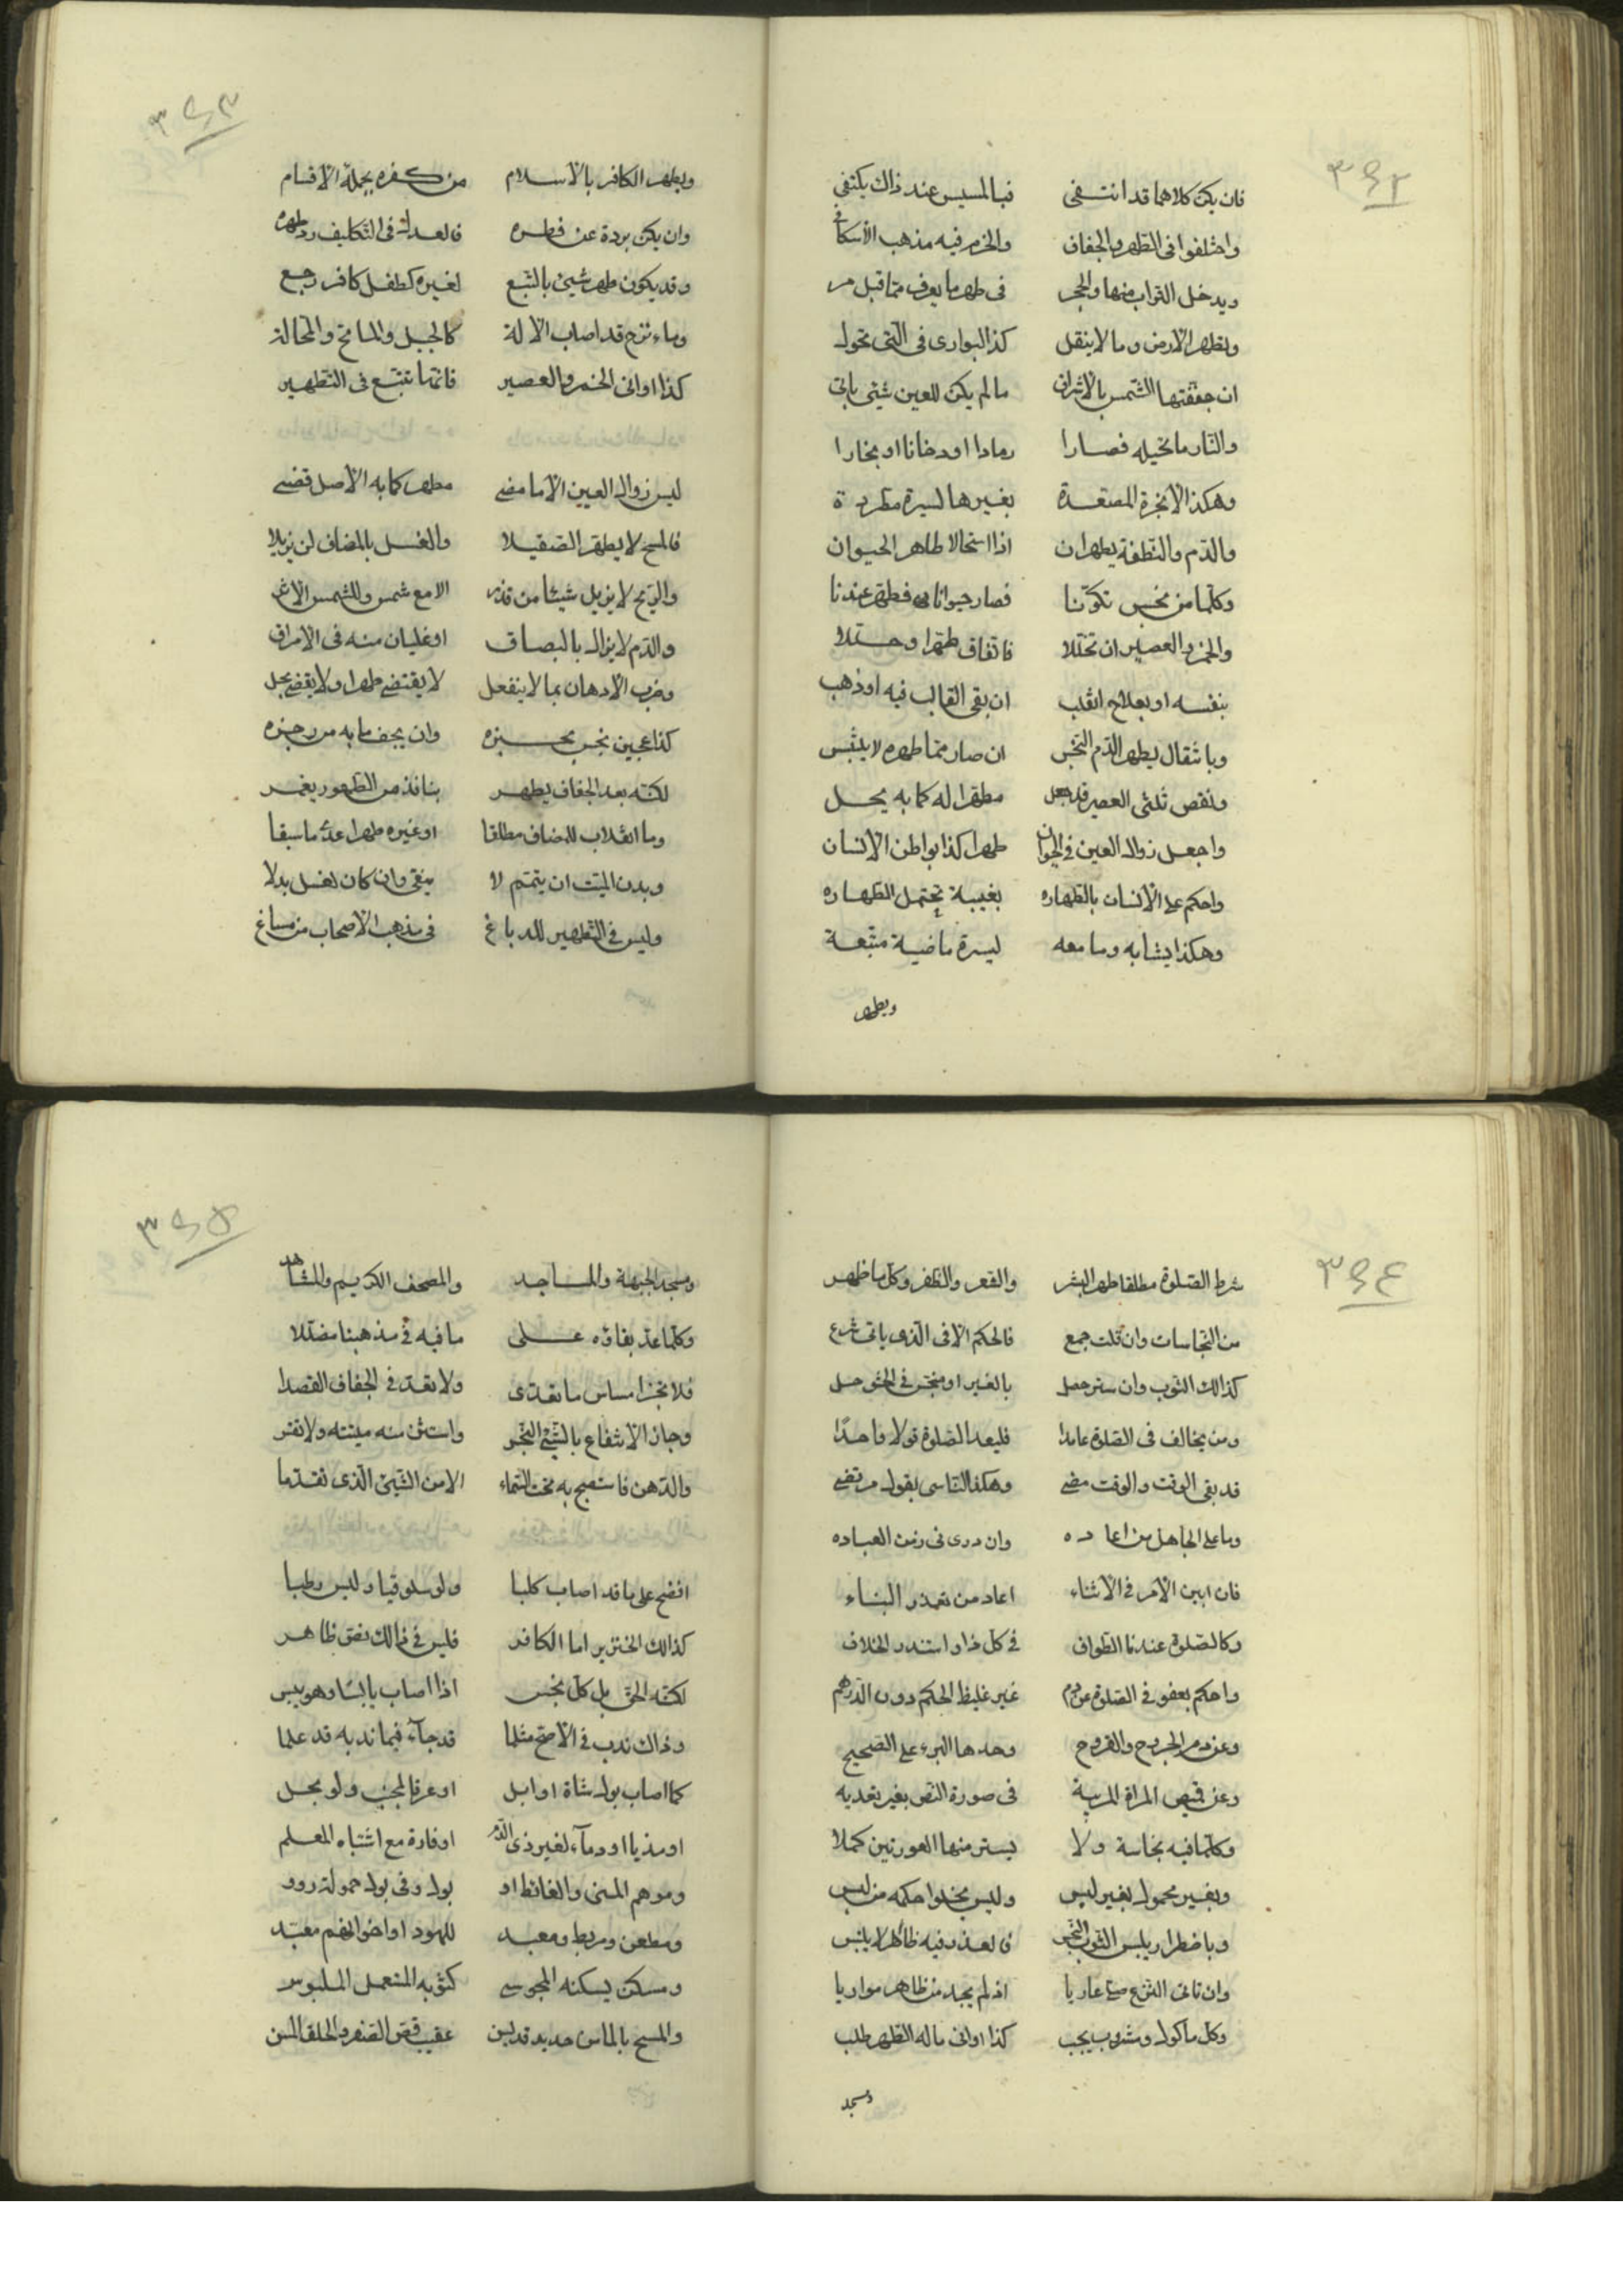 ٣٩٢
فان يكن كلاهما قد انتفى فبالمسيس عند ذاك يكتفي
واختلفوا في الطهر والجفاف والحزم فيه مذهب الأسكافي
ويدخل التراب منها والحجر في طهر ما يعرف مما قبل مر
وتطهر الأرض وما لا ينقل كذا البواري في التي تحول
ان جففتها الشمس بالاشراق ما لم يكن للعين شيئ باقي
والنار ما تحيله فصارا رمادا او دخانا او بخارا
وهكذا الأبخرة المصتعدة بغيرها لسيرة مطردة
والدم والنطفة يطهران اذا استحالا طاهر الحيوان
وكلما من نجس تكونا فصار حيوانا فطهر عندنا
والخمر والعصير ان تخللا فاتفاق طهرا وحللا
بنفسه او بعلاج انقلب ان بقي القالب فيه او ذهب
وبانتقال يطهر الدم النجس ان صار مما طهره لا يلتبس
ونقص ثلثي العصير قد جعل مطهرا له كما به يحل
واجعل زوال العين في الحيوان طهرا كذا بواطن الانسان
واحكم على الانسان بالطهاره بغيبة تحتمل الطهاره
وهكذا ثيابه وما معه لسيرة ماضية متبعة
ويطهر
٣٩٣
ويطهر الكافر بالاسلام من كفره بجملة الاقسام
وان يكن بردة عن فطره فالعدل في التكليف رد طهره
وقد يكون طهر شيئ بالتبع لغيره كطفل كافر رجع
وماء نزح قد اصاب الالة كالحبل والماتح والمحالة
كذا اواني الخمر والعصير فانها تتبع في التطهير
ليس زوال العين الا ما مضى مطهر كما به الأصل قضى
فالمسح لا يطهر الصقيلا والغسل بالمضاف لن يزيلا
والريح لا يزيل شيئا من قذر الا مع شمس وللشمس الاثر
والدم لا يزال بالبصاق او غليان منه في الامراق
وضرب الادهان بما لا ينفعل لا يقتضي طهرا ولا يقضي بحل
كذا عجين نجس بخبزه وان يجف ما به من رجزه
لكنه بعد الجفاف يطهر بنافذ من الطهور يغمر
وما انقلاب للمضاف مطلقا او غيره طهرا عدا ما سبقا
وبدن الميت ان يتمم لا ينقى وان كان لغسل بدلا
وليس في التطهير للدباغ في مذهب الأصحاب من مساغ
٣٩٤
شرط الصلوة مطلقا طهر البشر والشعر والظفر وكل ما ظهر
من النجاسات وان قلت جمع فالحكم الا في الذي ياتي شرع
كذالك الثوب وان ستر حصل بالغير او نجس في الحشو حل
ومن يخالف في الصلوة عامدا فليعد الصلوة قولا واحدا
قد بقي الوقت والوقت مضى وهكذا الناسي بقول مرتضى
وما على الجاهل من اعاده وان درى في زمن العباده
فان ابين الأمر في الاثناء اعاد من تعذر البناء
وكالصلوة عندنا الطواف في كل ذا واستدر الخلاف
واحكم بعفو في الصلوة عن دم غير غليظ الحكم دون الدرهم
وعن دم الجروح والقروح وحدها البرء على الصحيح
وعن قميص المراة المربية في صورة النص بغير تعديه
وكلما فيه نجاسة ولا يستر منها العورتين كملا
وبغير محمول بغير لبس وليس يخلوا حكمه من لبس
وباضطرار يلبس الثوب النجس فالعذر فيه ظاهر لا يلتبس
وان تاتى النزع صلى عاريا اذ لم يجد من طاهر مواريا
وكل ماكول ومشروب يجب كذا اواني ما له الطهر طلب
ومسجد
٣٩٥
ومسجد الجبهة والمساجد والمصحف الكريم والمشاهد
وكلما عد بقاؤه على ما فيه في مذهبنا مضللا
فلا تجز امساس ما تعدى ولا تعد في الجفاف القصدا
وجاز الانتفاع بالشيئ النجس واستثن منه ميتة ولا تقس
والدهن فاستصبح به تحت السماء الا من الشيئ الذي تقدما
انضح على ما قد اصاب كلبا ولو سلوقيا وليس رطبا
كذالك الخنزير اما الكافر فليس في ذالك نص ظاهر
لكنه الحق بل كل نجس اذا اصاب يابسا وهو يبس
وذاك ندب في الأصح مثلما قد جاء فيما ندبه قد علما
كما اصاب بول شاة او ابل او عرقا لمجنب ولو بحل
او مذيا او دماء لغير ذي الدم او فارة مع اشتباه المعلم
وموهم المنى والغائط او بول وفي بول حمولة رووا
ومطعن ومربط ومعبد لليهود او اخوانهم معبد
ومسكن يسكنه المجوسي كثوبه المنعمل الملبوس
والمسح بالماء من حديد قد لبس عقيب قص الظفر والحلق السن